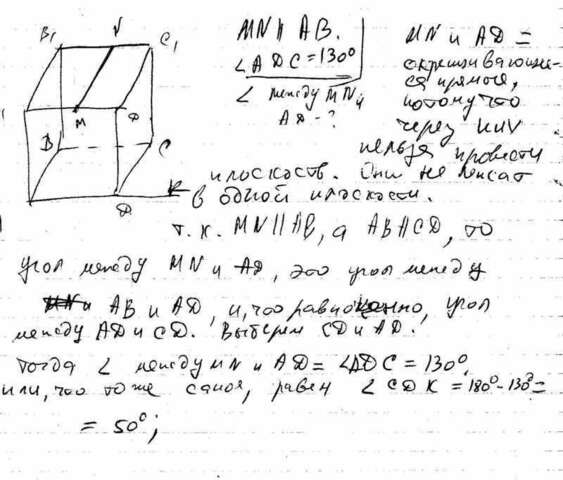 B₁ N C₁
M D
B C
D K
MN ∥ AB.
∠ADC = 130°
∠ между MN и
AD - ?
MN и AD =
скрещивающие-
ся прямые,
потому что
через них
нельзя провести
плоскость. Они не лежат
в одной плоскости.
т.к. MN ∥ AB, а AB∥CD, то
угол между MN и AD, это угол между
AB и AD, и, что равноценно, угол
между AD и CD. Выберем CD и AD.
Тогда ∠ между MN и AD = ∠ADC = 130°,
или, что то же самое, равен ∠CDK = 180° - 130° =
= 50°;